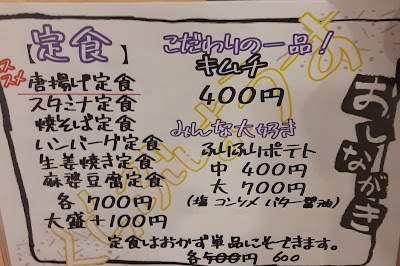 【定食】
ススメ
唐揚げ定食
スタミナ定食
焼そば定食
ハンバーグ定食
生姜焼き定食
麻婆豆腐定食
各700円
大盛+100円
こだわりの一品!
キムチ
400円
みんな大好き
ふりふりポテト
中 400円
大 700円
(塩 コンソメ バター醤油)
定食はおかず単品にもできます。
各500円 600
おしながき